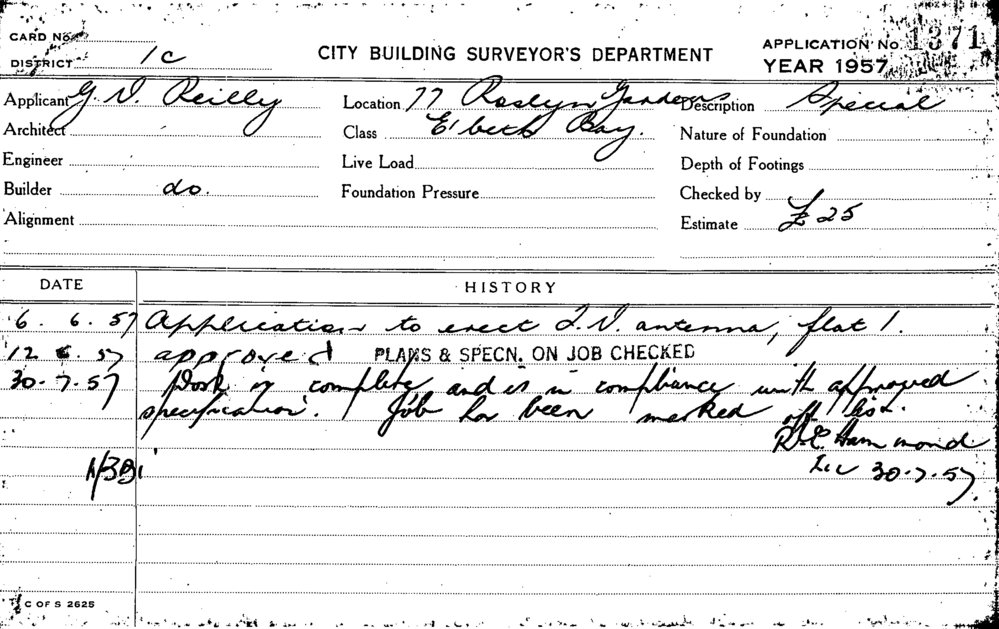 CARD No.
CITY BUILDING SURVEYOR'S DEPARTMENT
APPLICATION No. 1371
DISTRICT 1c
YEAR 1957
Applicant G. V. Reilly Location 77 Roslyn Gardens Description Special
Architect Class E'beth Bay. Nature of Foundation
Engineer Live Load Depth of Footings
Builder do. Foundation Pressure Checked by
Alignment Estimate £25
DATE HISTORY
6. 6. 57 Application to erect T.V. antenna, flat 1.
12 6. 57 approved PLANS & SPECN. ON JOB CHECKED
30-7-57 Work is complete and is in compliance with approved
specification. Job has been marked off list.
R.E. Hammond
30-7-57.
C OF S 2625